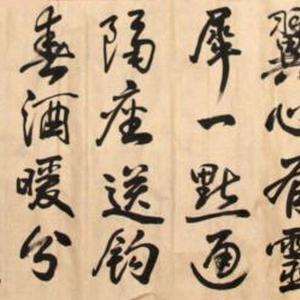 翼心有靈
犀一點通
隔座送鈎
春酒暖分